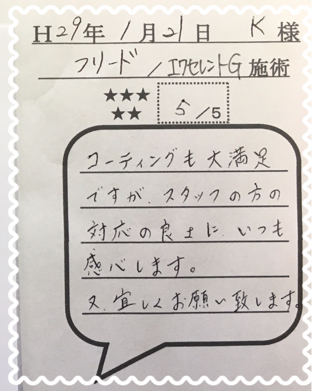 H29年 1月21日 K様
フリード/エクセレントG 施術
★★★
★★
5/5
コーティングも大満足
ですが、スタッフの方の
対応の良さに、いつも
感心します。
又、宜しくお願い致します。